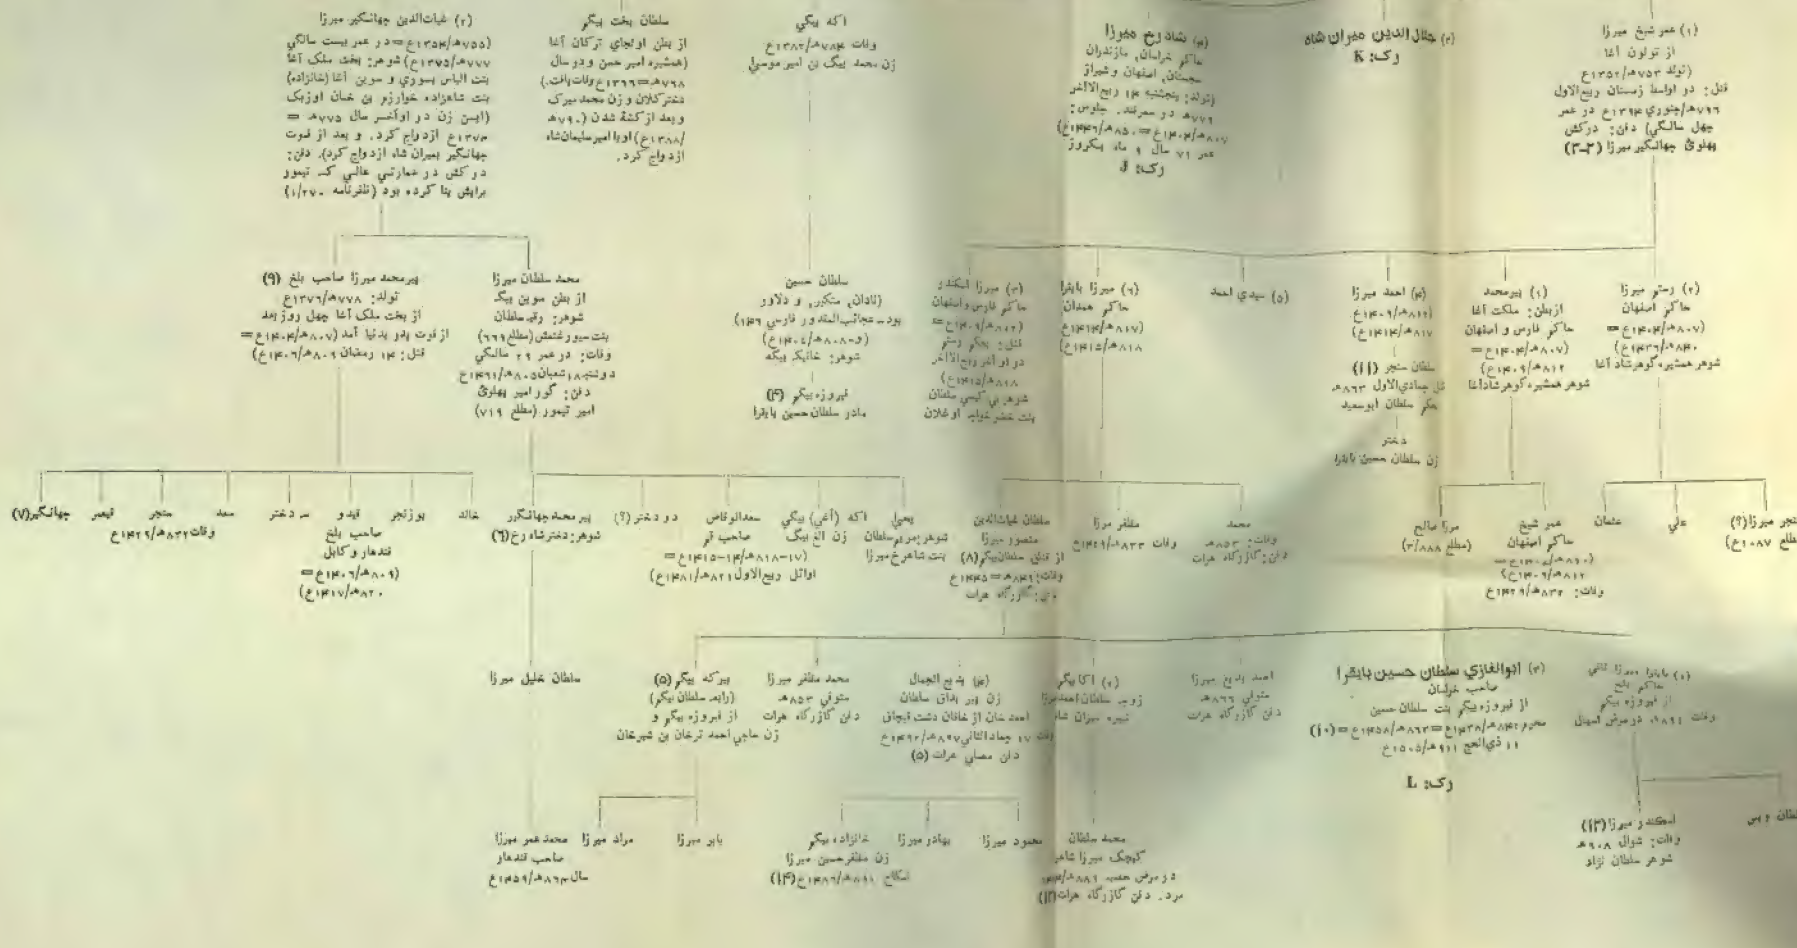 (۱) عمر شیخ میرزا
از تولون آغا
(تولد ۷۵۳ھ/۱۳۵۲ع
قتل: در اواسط زمستان ربیع‌الاول
۷۹۶ھ/جنوری ۱۳۹۴ع در عمر
چهل سالگي) دفن: درکش
پهلوئ جهانگیر میرزا (۲-۳)
(۳) جلال الدین میران شاه
رک: K
(۴) شاه رخ میرزا
حاکم خراسان، مازندران
سجستان، اصفهان و شیراز
(تولد: پنجشنبه ۱۴ ربیع‌الآخر
۷۷۹ھ در سمرقند. جلوس:
۸۰۷ھ/۱۴۰۴ع = ۸۵۰ھ/۱۴۴۶ع)
عمر ۷۱ سال ۹ ماه یکروز
رک: J
اکه بیگي
وفات ۷۸۴ھ/۱۳۸۲ع
زن محمد بیگ بن امیر موسیٰ
سلطان بخت بیگم
از بطن اولجاي ترکان آغا
(همشیره امیر حسن و در سال
۷۶۸ھ=۱۳۶۶ع وفات یافت.)
دخترکلان و زن محمد میرک
و بعد از کشته شدن (۷۹۰ھ
/۱۳۸۸ع) اوبا امیر سلیمان‌شاه
ازدواج کرد.
(۲) غیاث‌الدین جهانگیر میرزا
(۷۵۵ھ/۱۳۵۴ع = در عمر بیست سالگي
۷۷۷ھ/۱۳۷۵ع) شوهر: بخت ملک آغا
بنت الیاس یسوري و سوین آغا (خانزاده)
بنت شاهزاده خوارزم بن خان اوزبک
(ایسن زن در اوآخسر سال ۷۷۵ھ =
۱۳۷۳ع ازدواج کرد. و بعد از فوت
جهانگیر بمیران شاه ازدواج کرد). دفن:
در کش در عمارتي عالي کہ تیمور
برایش بنا کرده بود (ظفرنامه ۱/۲۷۰)
(۲) رستم میرزا
حاکم اصفهان
(۸۰۷ھ/۱۴۰۴ع =
۸۴۰ھ/۱۴۳۶ع)
شوهر همشیره گوهرشاد آغا
(۱) پیرمحمد
ازبطن: ملکت آغا
حاکم فارس و اصفهان
(۸۰۷ھ/۱۴۰۴ع =
۸۱۲ھ/۱۴۰۹ع)
شوهر همشیره گوهرشادآغا
(۴) احمد میرزا
(۸۱۲ھ/۱۴۰۹ع.
۸۱۷ھ/۱۴۱۴ع)
سلطان سنجر (۱۱)
قتل جمادي‌الاول ۸۶۳ھ
بحکم سلطان ابوسعید
دختر
زن سلطان حسین بایقرا
(۵) سیدي احمد
(۶) میرزا بایقرا
حاکم همدان
(۸۱۷ھ/۱۴۱۴ع
۸۱۸ھ/۱۴۱۵ع)
(۳) میرزا اسکندر
حاکم فارس و اصفهان
(۸۱۲ھ/۱۴۰۹ع =
قتل: بحکم رستم
در اواخر ربیع‌الآخر
۸۱۸ھ/۱۴۱۵ع)
شوهر: بي کیسي سلطان
بنت خضر خواجه اوغلان
سلطان حسین
(نادان، متکبر، و دلاور
بود_عجائب‌المقدور فارسي ۱۴۶)
(و-۸۰۸ھ/۱۴۰۵ع)
شوهر: خانیکہ بیگه
فیروزه بیگم (۴)
مادر سلطان حسین بایقرا
محمد سلطان میرزا
از بطن سوین بیگہ
شوهر: رقیہ سلطان
بنت سیورغتمش (مطلع ۶۶۹)
وفات: در عمر ۲۹ سالگي
دوشنبه ۱۸ شعبان ۸۰۵ھ/
دفن: گور امیر پهلوئ
امیر تیمور (مطلع ۷۱۹)
پیرمحمد میرزا صاحب بلخ (۹)
تولد: ۷۷۸ھ/۱۳۷۶ع
از بخت ملک آغا چهل روز بعد
از فوت پدر بدنیا آمد (۸۰۷ھ/۱۴۰۴ع =
قتل: ۱۴ رمضان ۸۰۹ھ/۱۴۰۶ع)
سنجر میرزا (؟)
(مطلع ۱۰۸۷ع)
علي
عثمان
عمر شیخ
حاکم اصفهان
۸۱۲ھ/۱۴۰۹ع)
وفات: ۸۳۲ھ/۱۴۲۹ع
مرزا صالح
(مطلع ۳/۸۸۸)
محمد
وفات: ۸۵۳ھ
دفن: گازرگاه هرات
مظفر مرزا
وفات ۸۳۳ھ/۱۴۲۹ع
سلطان غیاث‌الدین
منصور میرزا
از قتلق سلطان‌بیگم (۸)
وفات: ۸۴۹ھ = ۱۴۴۵ع
دفن: گازرگاه هرات
یحییٰ
شوهر: مریم سلطان
بنت شاهرخ میرزا
اکه (آغی) بیگي
زن الغ بیگ
سعدالوقاص
صاحب قم
(۱۷-۸۱۸ھ/۱۴-۱۴۱۵ع =
اوائل ربیع‌الاول ۸۲۱ھ/
دو دختر (؟)
پیر محمد جهانگیر
شوهر: دختر شاه رخ (۶)
خالد
بوزنجر
قیدو
صاحب بلخ
قندهار و کابل
(۸۰۹ھ/۱۴۰۶ع =
۸۲۰ھ/۱۴۱۷ع)
سہ دختر
سعد
سنجر
وفات ۸۳۲ھ/۱۴۲۹ع
قیصر
جهانگیر (۷)
(۱) بایقرا میرزا ثاني
حاکم بلخ
از فیروزه بیگم
وفات ۸۹۱ھ، در مرض اسهال
(۳) ابوالغازي سلطان حسین بایقرا
صاحب خراسان
از فیروزه بیگم بنت سلطان حسین
محرم ۸۴۲ھ/۱۴۳۸ع = ۸۶۳ھ/۱۴۵۸ع = (۱۰)
۱۱ ذي‌الحج ۹۱۱ھ/۱۵۰۵ع
رک: L
احمد بدیع میرزا
متوفي ۸۶۶ھ
دفن گازرگاه هرات
(۲) آکا بیگم
زوجہ سلطان احمد میرزا
نبیره میران شاه
(۴) بدیع الجمال
زن پیر بداق سلطان
احمد خان از خاقان دشت قبچاق
وفات ۱۷ جمادالثاني ۸۹۷ھ/۱۴۹۲ع
دفن مصلي هرات (۵)
محمد مظفر میرزا
متوفي ۸۵۳ھ
دفن گازرگاه هرات
بیرکه بیگم (۵)
(رابعہ سلطان بیگم)
از فیروزه بیگم و
زن حاجي احمد ترخان بن شیرخان
سلطان خلیل میرزا
سلطان ویس
اسکندر میرزا (۱۳)
وفات: شوال ۹۰۸ھ
شوهر سلطان نژاد
محمد سلطان
کیچک میرزا شاعر
در مرض حصبہ ۸۸۹ھ/۱۴۸۴
مرد. دفن گازرگاه هرات (۱۲)
محمود میرزا
بهادر میرزا
خانزاده بیگم
زن مظفر حسین میرزا
نکاح ۸۹۱ھ/۱۴۸۶ع (۱۴)
بابر میرزا
مراد میرزا
محمد عمر میرزا
صاحب قندهار
سال ۸۶۳ھ/۱۴۵۹ع